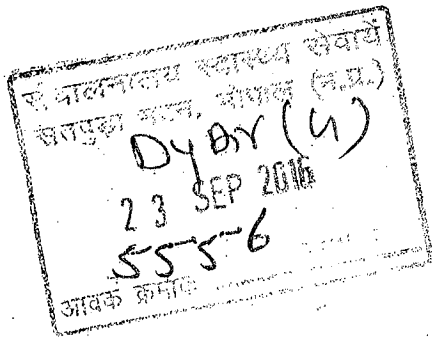 संचालनालय स्वास्थ्य सेवायें
सतपुड़ा भवन, भोपाल (म.प्र.)
Dy Dir (4)
23 SEP 2016
5556
आवक क्रमांक